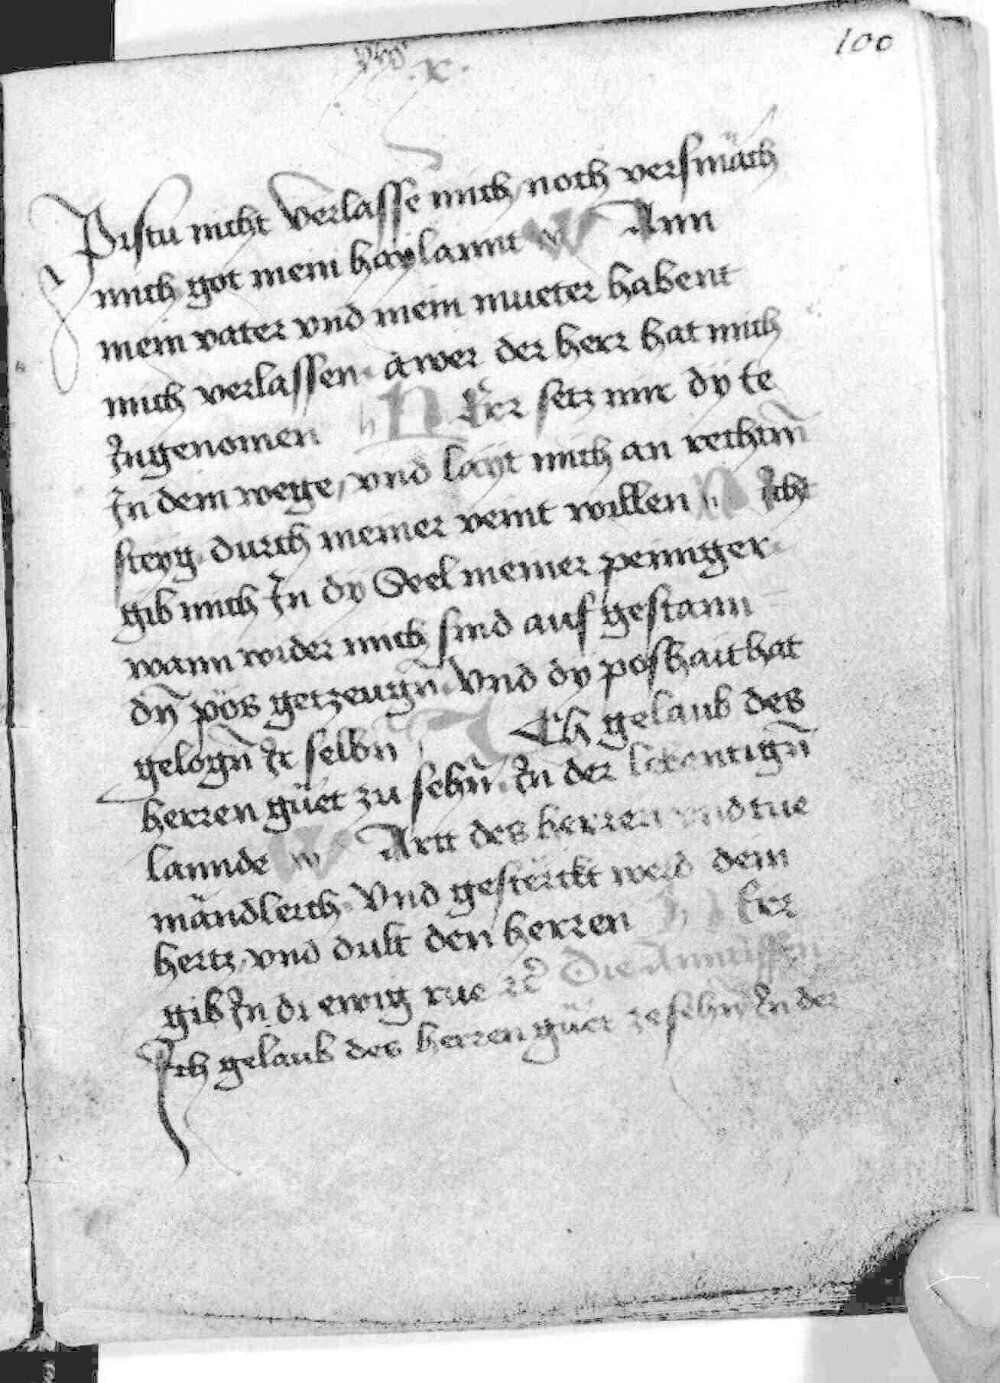 100
.x.
Pistu nicht verlasse mich noch versmäch
mich got mein haylannt W Ann
mein vater vnd mein mueter habent
mich verlassen· awer der herr hat mich
Ingenomen H Err setz mir dy te
In dem wege, vnd layt mich an rechtm̄
steyg· durch meiner veint willen N Icht
gib mich In dy Seel meiner peiniger·
wann wider mich sind auf gestann
dy̆ pös getzeugn̄· Vnd dy poshait hat
gelogn̄ Ir selbn I Ch gelaub des
herren güet zu sehn̄· In der lebentign̄
lannde W Artt des herren vnd tue
mändlerch· Vnd gesterckt werd dein
hertz, vnd dult den herren H Err
gib In di ewig rue rc̄ Die Anntiffen
Ich gelaub des herren güet ze sehn̄ In der